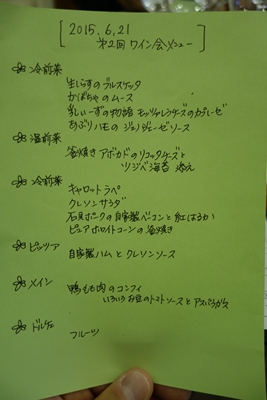 2015.6.21
第2回 ワイン会メニュー
冷前菜
生しらすのブルスケッタ
かぼちゃのムース
乳しぃーずの物語 モッツァレラチーズのカプレーゼ
あぶりハモの ジェノベーゼソース
温前菜
釜焼き アボカドのリコッタチーズと
ツジベ海苔 添え
冷前菜
キャロットラペ
クレソンサラダ
石見ポークの自家製ベーコンと紅はるか
ピュアホワイトコーンの釜焼き
ピッツァ
自家製ハムとクレソンソース
メイン
鴨もも肉のコンフィ
いろいろお豆のトマトソースとアスパラガス
ドルチェ
フルーツ